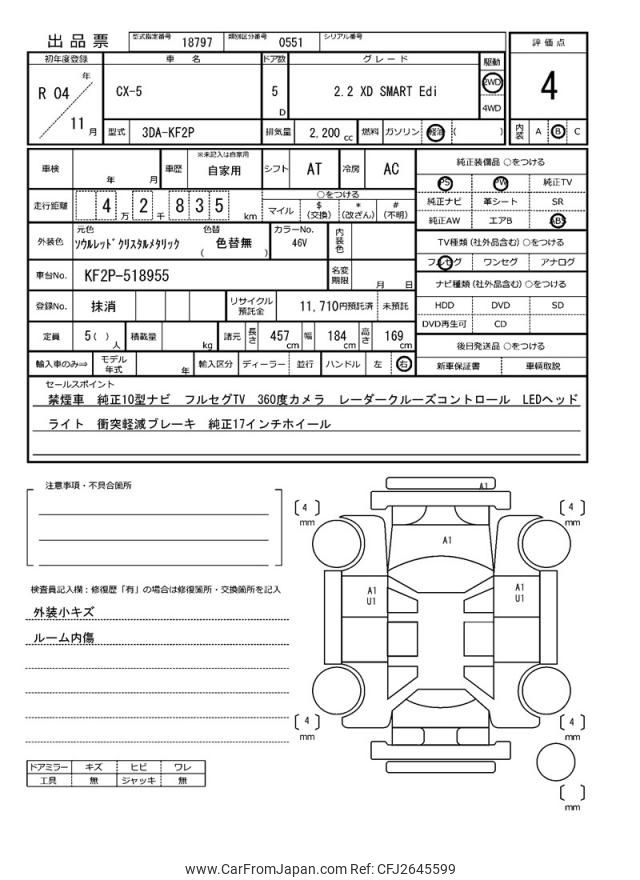 出品票 型式指定番号 18797 類別区分番号 0551 シリアル番号
評価点
4
初年度登録 車名 ドア数 グレード 駆動
R 04 年 11 月
CX-5 5 D 2.2 XD SMART Edi 2WD
4WD
型式 3DA-KF2P 排気量 2,200 cc 燃料 ガソリン 軽油 ( )
内装 A B C
車検 年 月 車歴 ※未記入は自家用 自家用 シフト AT 冷房 AC
走行距離 4 万 2 千 8 3 5 km
○をつける
マイル $ (交換) * (改ざん) # (不明)
外装色 元色 ソウルレッドクリスタルメタリック 色替 ( 色替無 ) カラーNo. 46V 内装色
車台No. KF2P-518955 名変期限 月 日
登録No. 抹消 リサイクル預託金 11,710円預託済 未預託
定員 5( ) 人 積載量 kg 諸元 長さ 457 cm 幅 184 cm 高さ 169 cm
輸入車のみ⇒ モデル年式 年 輸入区分 ディーラー 並行 ハンドル 左 右
純正装備品 ○をつける
PS PW 純正TV
純正ナビ 革シート SR
純正AW エアB ABS
TV種類 (社外品含む) ○をつける
フルセグ ワンセグ アナログ
ナビ種類 (社外品含む) ○をつける
HDD DVD SD
DVD再生可 CD
後日発送品 ○をつける
新車保証書 車輌取説
セールスポイント
禁煙車 純正10型ナビ フルセグTV 360度カメラ レーダークルーズコントロール LEDヘッド
ライト 衝突軽減ブレーキ 純正17インチホイール
注意事項・不具合箇所
検査員記入欄：修復歴「有」の場合は修復箇所・交換箇所を記入
外装小キズ
ルーム内傷
ドアミラー キズ ヒビ ワレ
工具 無 ジャッキ 無
A1
[ 4 ] mm
[ 4 ] mm
A1
A1
U1
A1
U1
[ 4 ] mm
[ 4 ] mm
[ ] mm
www.CarFromJapan.com Ref: CFJ2645599